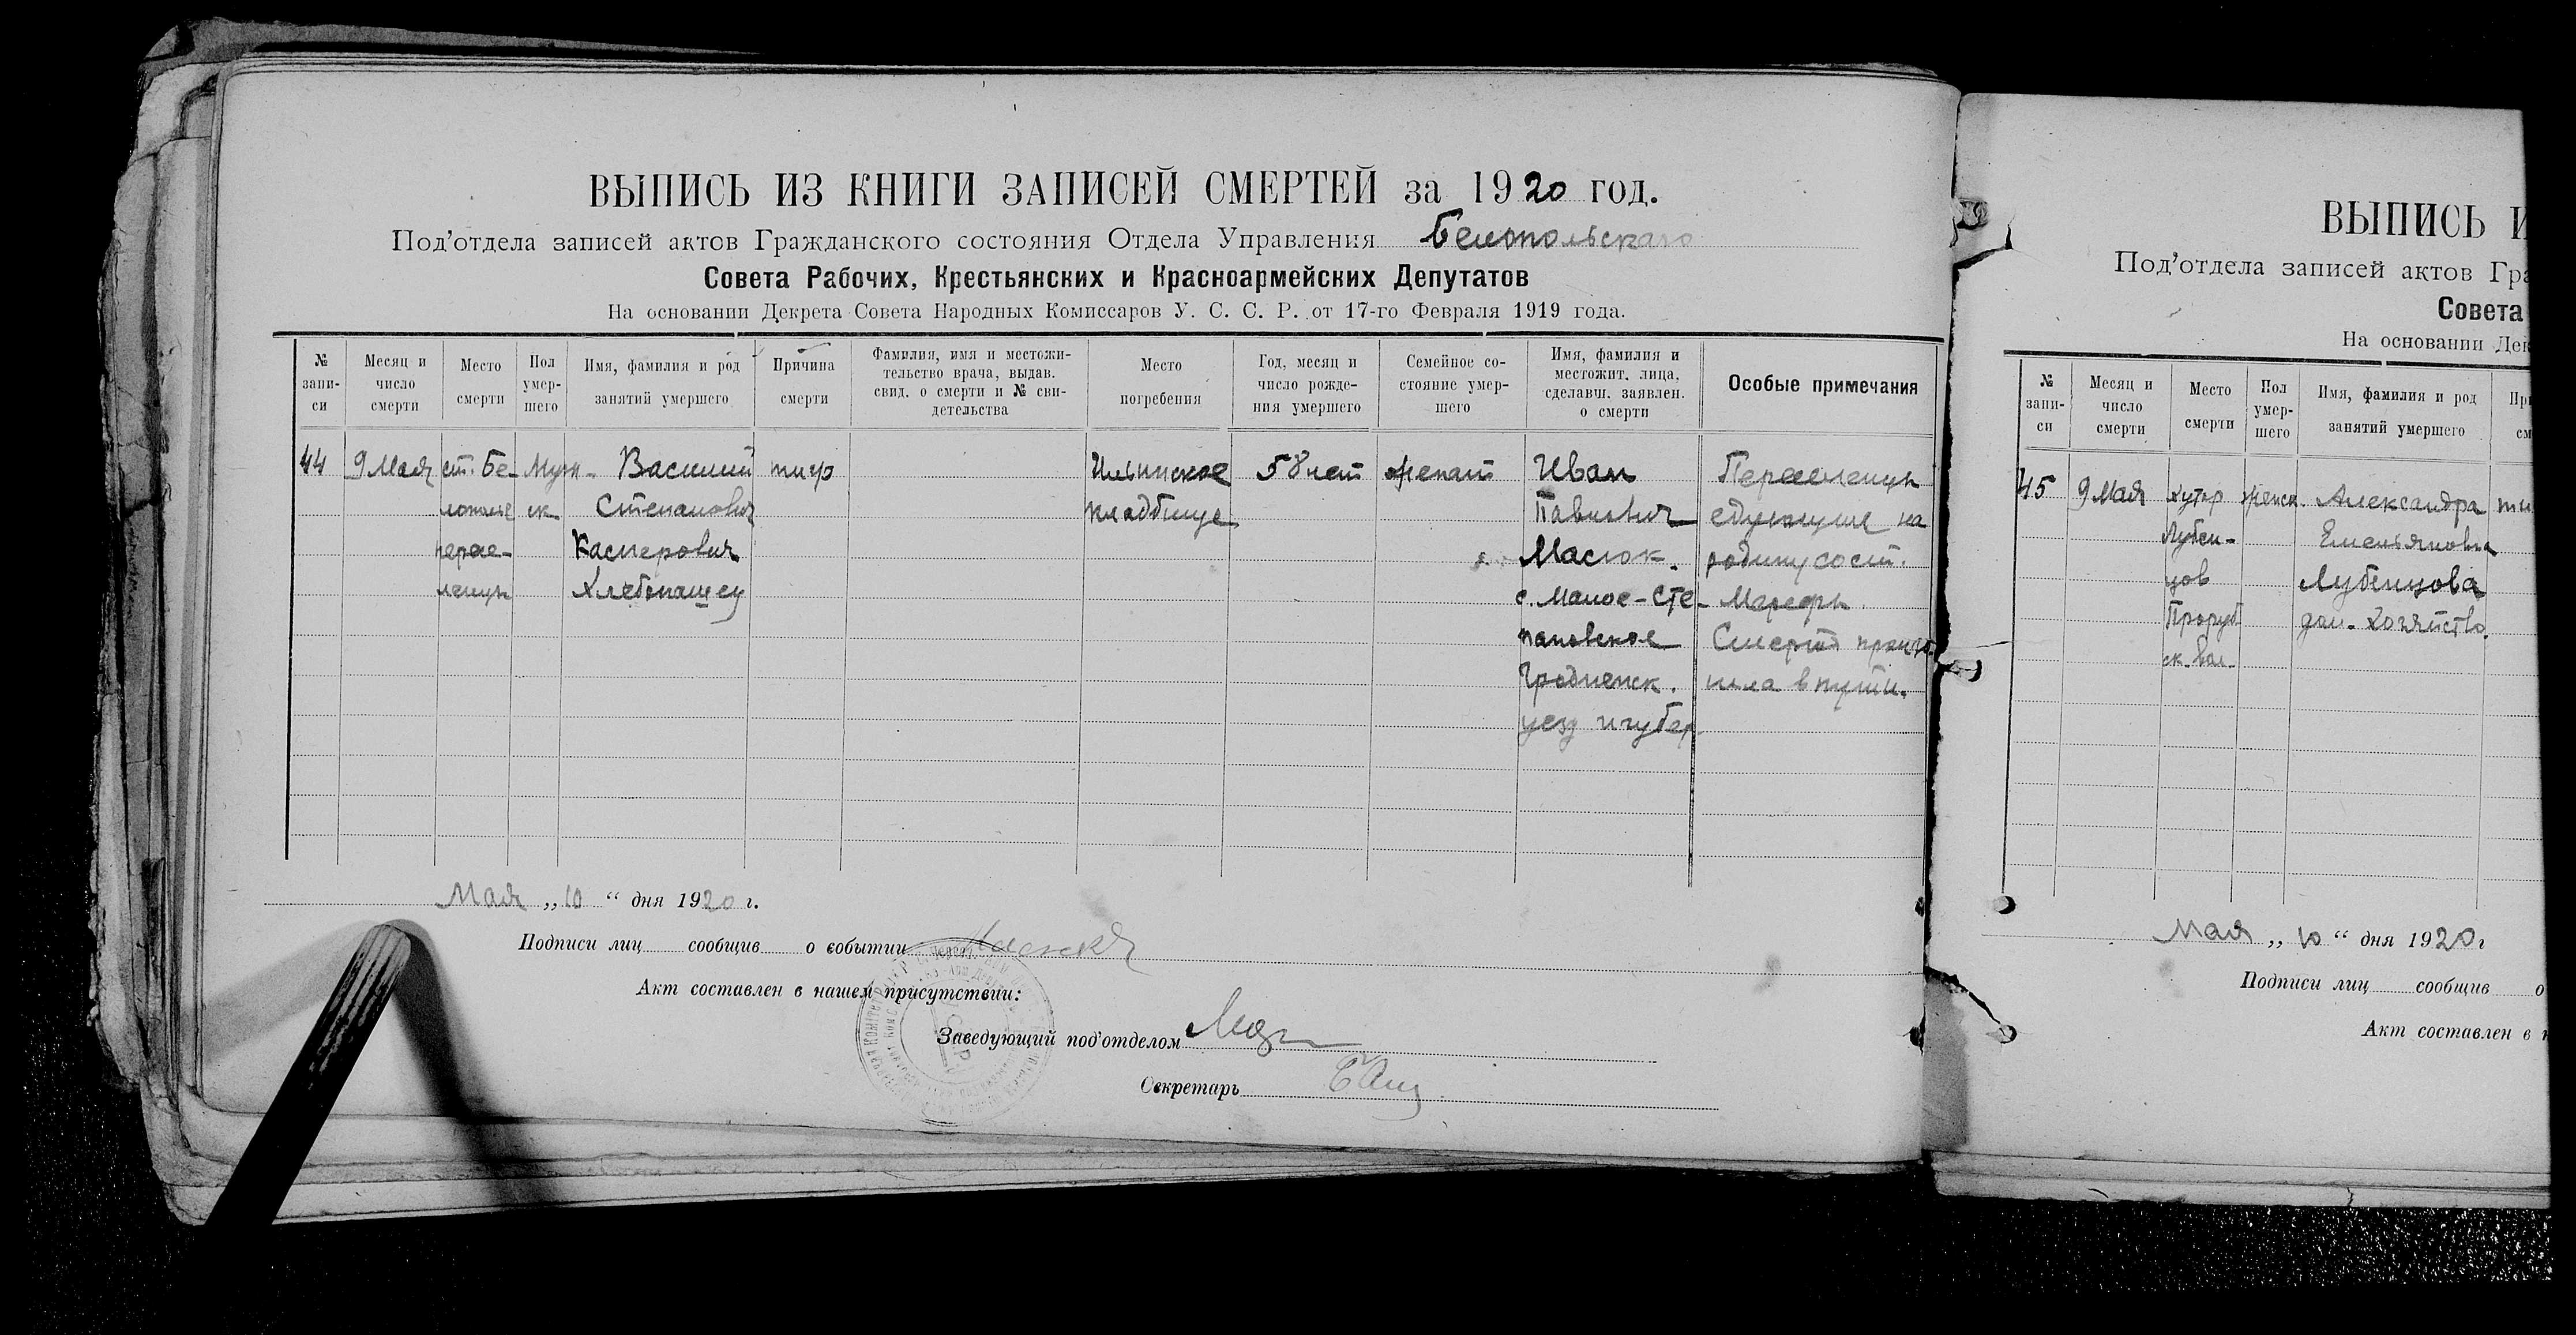 ВЫПИСЬ ИЗ КНИГИ ЗАПИСЕЙ СМЕРТЕЙ за 1920 год.
Под’отдела записей актов Гражданского состояния Отдела Управления Белопольскаго
Совета Рабочих, Крестьянских и Красноармейских Депутатов
На основании Декрета Совета Народных Комиссаров У. С. С. Р. от 17-го Февраля 1919 года.
№ запи-си
Месяц и число смерти
Место смерти
Пол умер-шего
Имя, фамилия и род занятий умершего
Причина смерти
Фамилия, имя и местожи-тельство врача, выдав. свид. о смерти и № сви-детельства
Место погребения
Год, месяц и число рожде-ния умершего
Семейное со-стояние умер-шего
Имя, фамилия и местожит. лица, сделавш. заявлен. о смерти
Особые примечания
44
9 Мая
ст. Бе-
лополье
пересе-
ленцы
Муж-
ск
Василий
Степанович
Касперович
Хлебопашец
тиф
Ильинское
кладбище
58 лет
женат
Иван
Павлович
Масюк.
с. Малое-Сте-
пановское
Гродненск.
уезд и губер
Переселенцы
едующие на
родину сост.
Мерефы.
Смерть произо-
шла в пути.
Мая „10“ дня 1920 г.
Подписи лиц сообщив о событии
Акт составлен в нашем присутствии:
Заведующий под’отделом
Секретарь
ВЫПИСЬ И
Под’отдела записей актов Гра
Совета
На основании Дек
№ запи-си
Месяц и число смерти
Место смерти
Пол умер-шего
Имя, фамилия и род занятий умершего
При
см
45
9 Мая
Хутор
Лубен-
цов
Проруб
ск. вол.
женск.
Александра
Емельяновна
Лубенцова
дом. хозяйство.
ти
Мая „10“ дня 1920 г
Подписи лиц сообщив о
Акт составлен в н